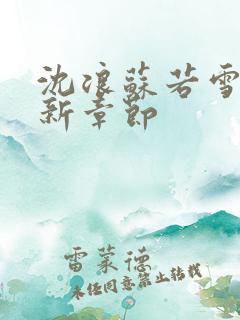 沈浪蘇若雪
新章節
雷萊德
未经同意禁止转载